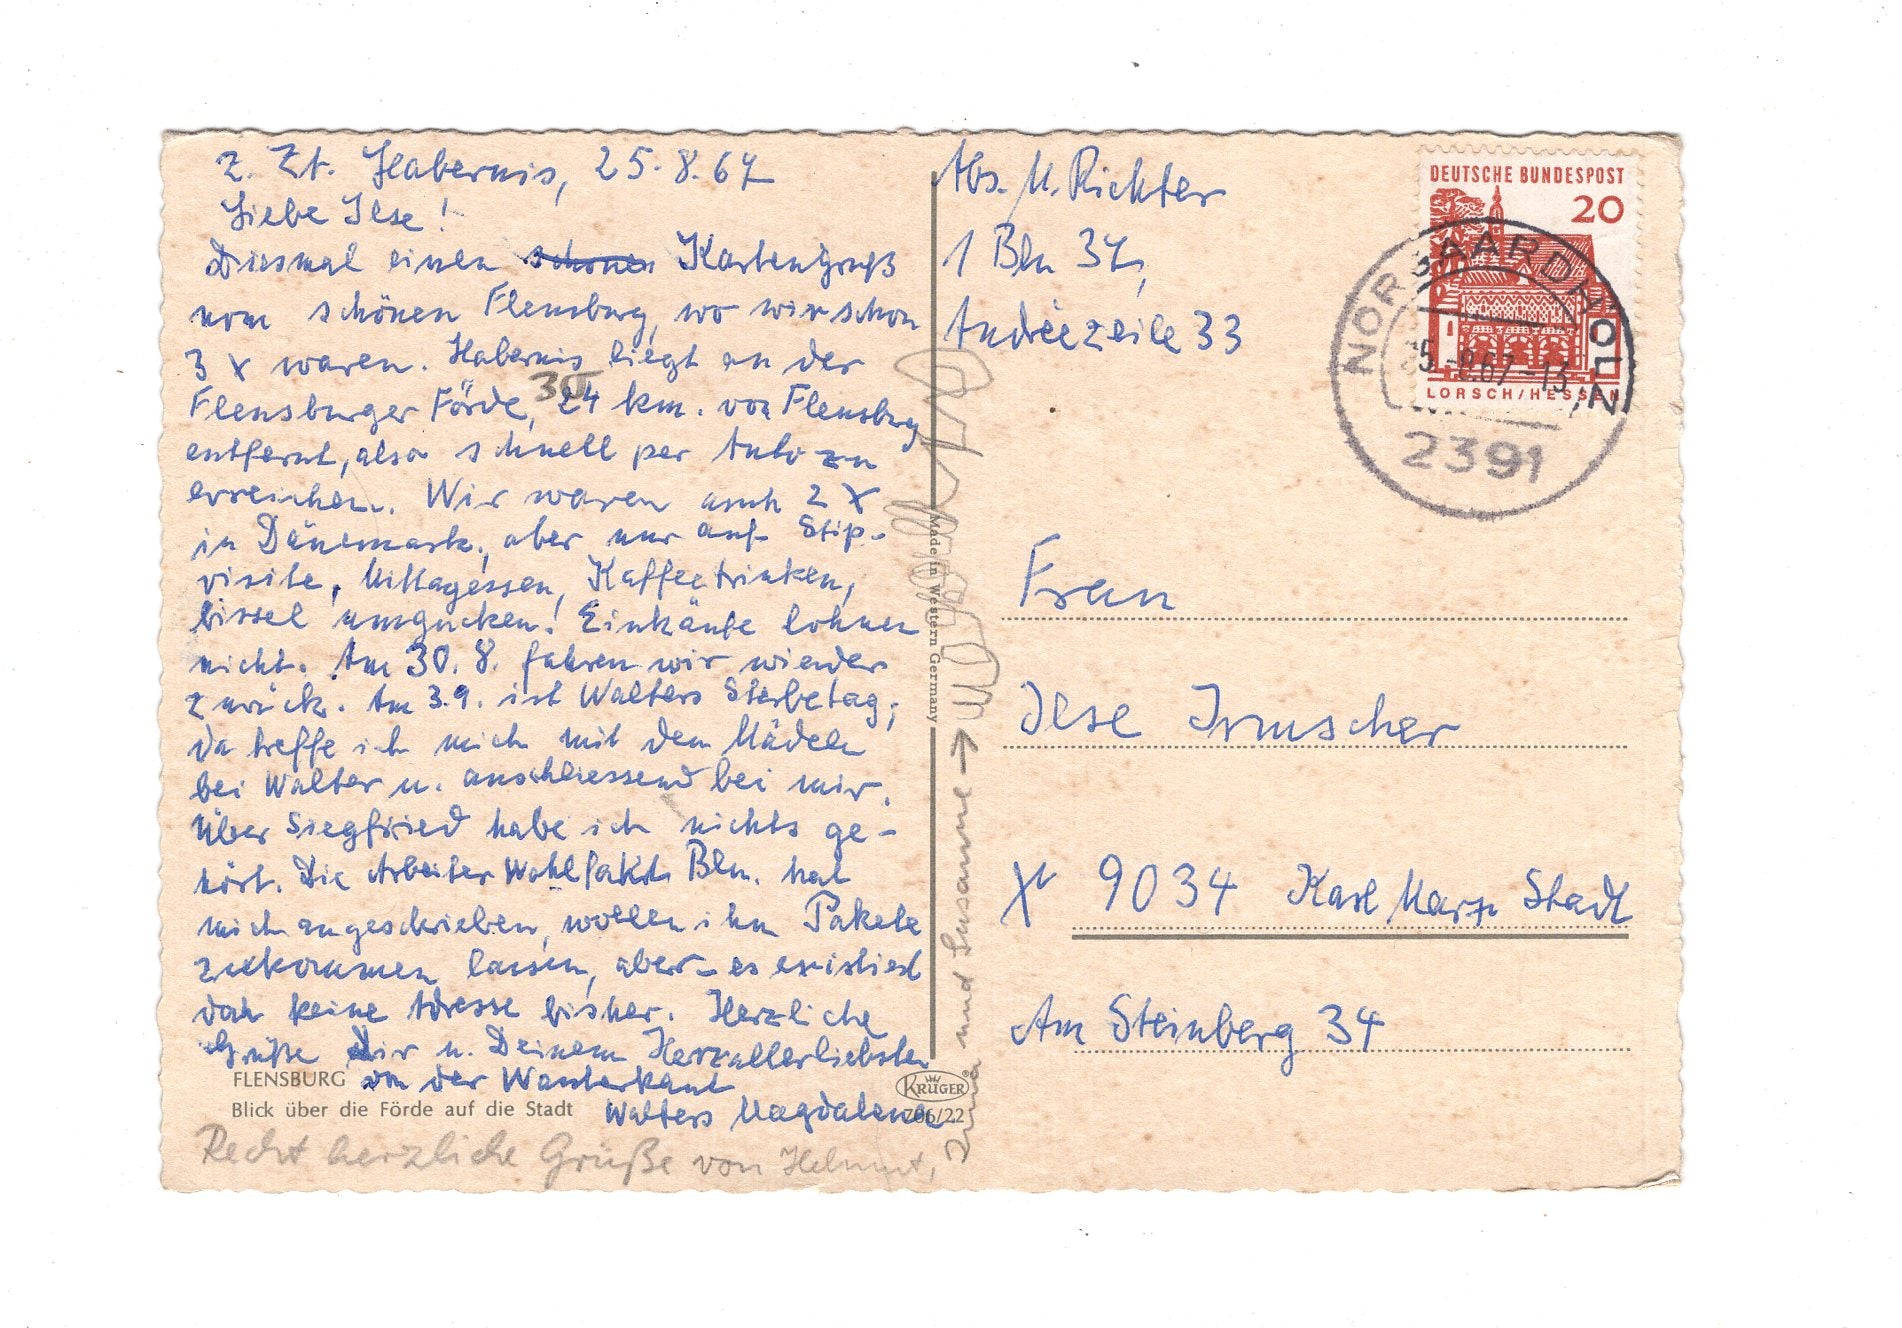 z. Zt. Habernis, 25.8.67
Liebe Ilse!
Diesmal einen schönen Kartengruß
vom schönen Flensburg, wo wir schon
3 x waren. Habernis liegt an der
30
Flensburger Förde, 24 km. von Flensburg
entfernt, also schnell per Auto zu
erreichen. Wir waren auch 2 x
in Dänemark, aber nur auf Stip-
visite, Mittagessen, Kaffeetrinken,
bissel umgucken! Einkäufe lohnen
nicht. Am 30.8. fahren wir wieder
zurück. Am 3.9. ist Walters Sterbetag,
da treffe ich mich mit den Mädeln
bei Walter u. anschliessend bei mir.
Über Siegfried habe ich nichts ge-
hört. Die Arbeiter Wohlfahrt Bln. hat
mich angeschrieben, wollen ihm Pakete
zukommen lassen, aber – es existiert
doch keine Adresse bisher. Herzliche
Grüße Dir u. Deinem Herzallerliebsten
von der Wasserkant
Walters Magdalena
FLENSBURG
Blick über die Förde auf die Stadt
Recht herzliche Grüße von Helmut,
und Susanne →
Made in Western Germany
KRÜGER
706/22
Abs. M. Richter
1 Bln 37,
Andréezeile 33
DEUTSCHE BUNDESPOST
20
LORSCH/HESSEN
NORGAARDHOLZ
25.-8.67-13
2391
Frau
Ilse Irmscher
X 9034 Karl Marx Stadt
Am Steinberg 34